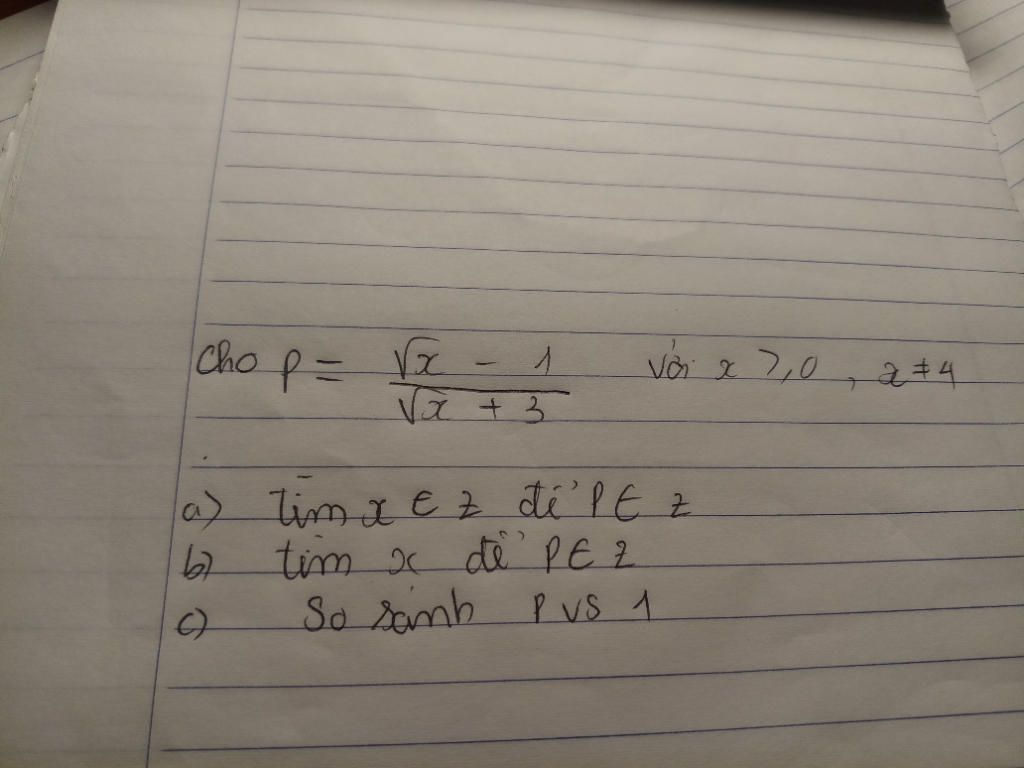 Cho P = \frac{\sqrt{x} - 1}{\sqrt{x} + 3} với x ⩾ 0, x ≠ 4
a) tìm x ∈ Z để P ∈ Z
b) tìm x để P ∈ Z
c) So sánh P vs 1